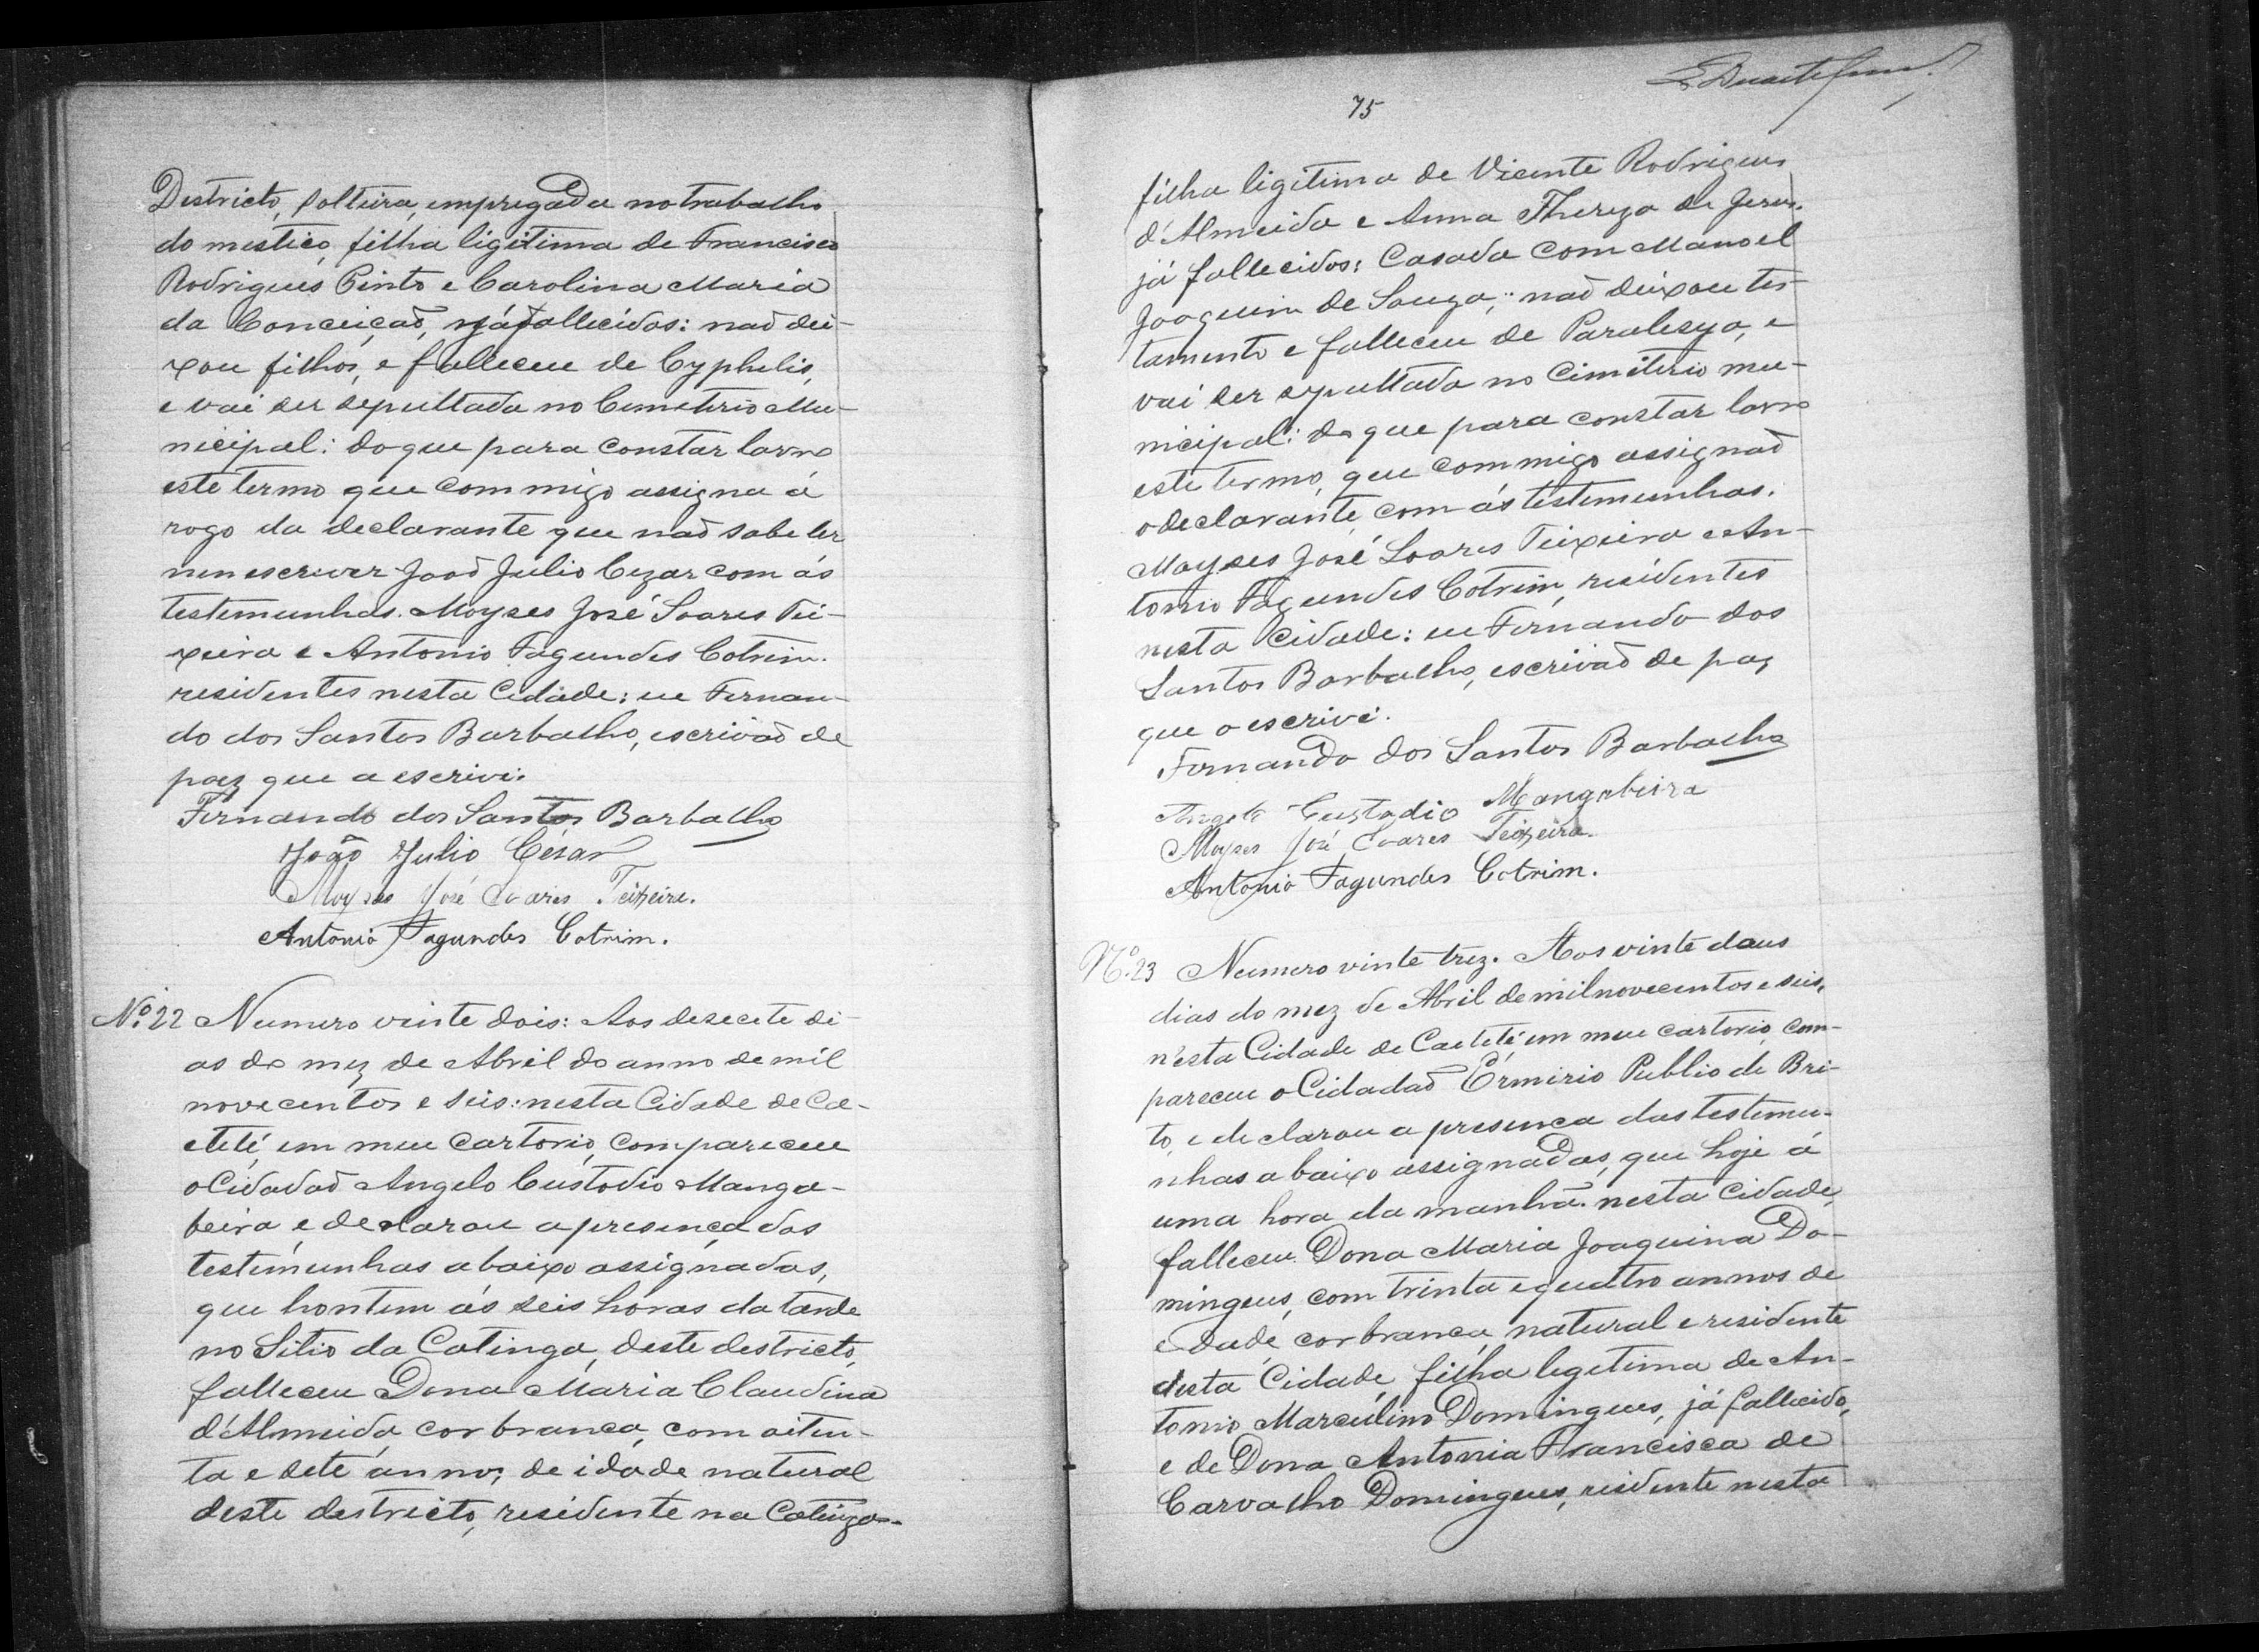 Districto, solteira, empregada no trabalho
do mestico, filha ligitima de Francisco
Rodrigues Pinto e Carolina Maria
da Conceiçaõ, já fallecidos: naõ dei-
xou filhos, e falleceu de Cyphelis,
e vai ser sepultada no Cemeterio Mu-
nicipal: do que para constar lavro
este termo que commigo assigna á
rogo da declarante que naõ sabe ler
nem escrever Joaõ Julio Cezar com ás
testemunhas. Moyses José Soares Tei-
xeira e Antonio Fagundes Cotrim.
residentes nesta Cidade: eu Fernan-
do dos Santos Barbalho, escrivaõ de
paz que a escrivi.
Fernando dos Santos Barbalho
João Julio César
Moyses José Soares Teixeira.
Antonio Fagundes Cotrim.
Nº 22 Numero vinte dois: Aos desecete di-
as do mez de Abril do anno de mil
novecentos e seis: nesta Cidade de Ca-
eteté, em meu cartorio, compareceu
o Cidadaõ Angelo Custodio Manga-
beira, e declarou a presença das
testemunhas abaixo assignadas,
que hontem ás seis horas da tarde
no Sitio da Catinga, deste destricto,
falleceu Dona Maria Claudina
d'Almeida, cor branca, com oiten-
ta e sete annos de idade natural
deste destricto, residente na Catinga.
75
filha ligitima de Vicente Rodrigues
d'Almeida e Anna Thereza de Jesus.
já fallecidos: Casada com Manoel
Joaquim de Souza, naõ deixou tes-
tamento e falleceu de Paralesya, e
vai ser sepultada no Cimiterio mu-
nicipal: do que para constar lavro
este termo, que commigo assignaõ
o declarante com ás testemunhas.
Moyses José Soares Teixeira e An-
tonio Fagundes Cotrim, residentes
nesta Cidade: eu Fernando dos
Santos Barbalho, escrivaõ de paz
que o escrivi.
Fernando dos Santos Barbalho
Angelo Custodio Mangabeira
Moyses José Soares Teixeira.
Antonio Fagundes Cotrim.
Nº 23 Numero vinte trez. Aos vinte dous
dias do mez de Abril de mil novecentos e seis,
n'esta Cidade de Caeteté em meu cartorio, com-
pareceu o Cidadaõ Ermirio Publio de Bri-
to, e declarou a presença das testemu-
nhas abaixo assignadas, que hoje á
uma hora da manhã nesta Cidade,
falleceu Dona Maria Joaquina Do-
mingues, com trinta e quatro annos de
edade, cor branca, natural e residente
desta Cidade, filha legitima de An-
tonio Marculino Domingues, já fallecido,
e de Dona Antonia Francisca de
Carvalho Domingues, residente nesta